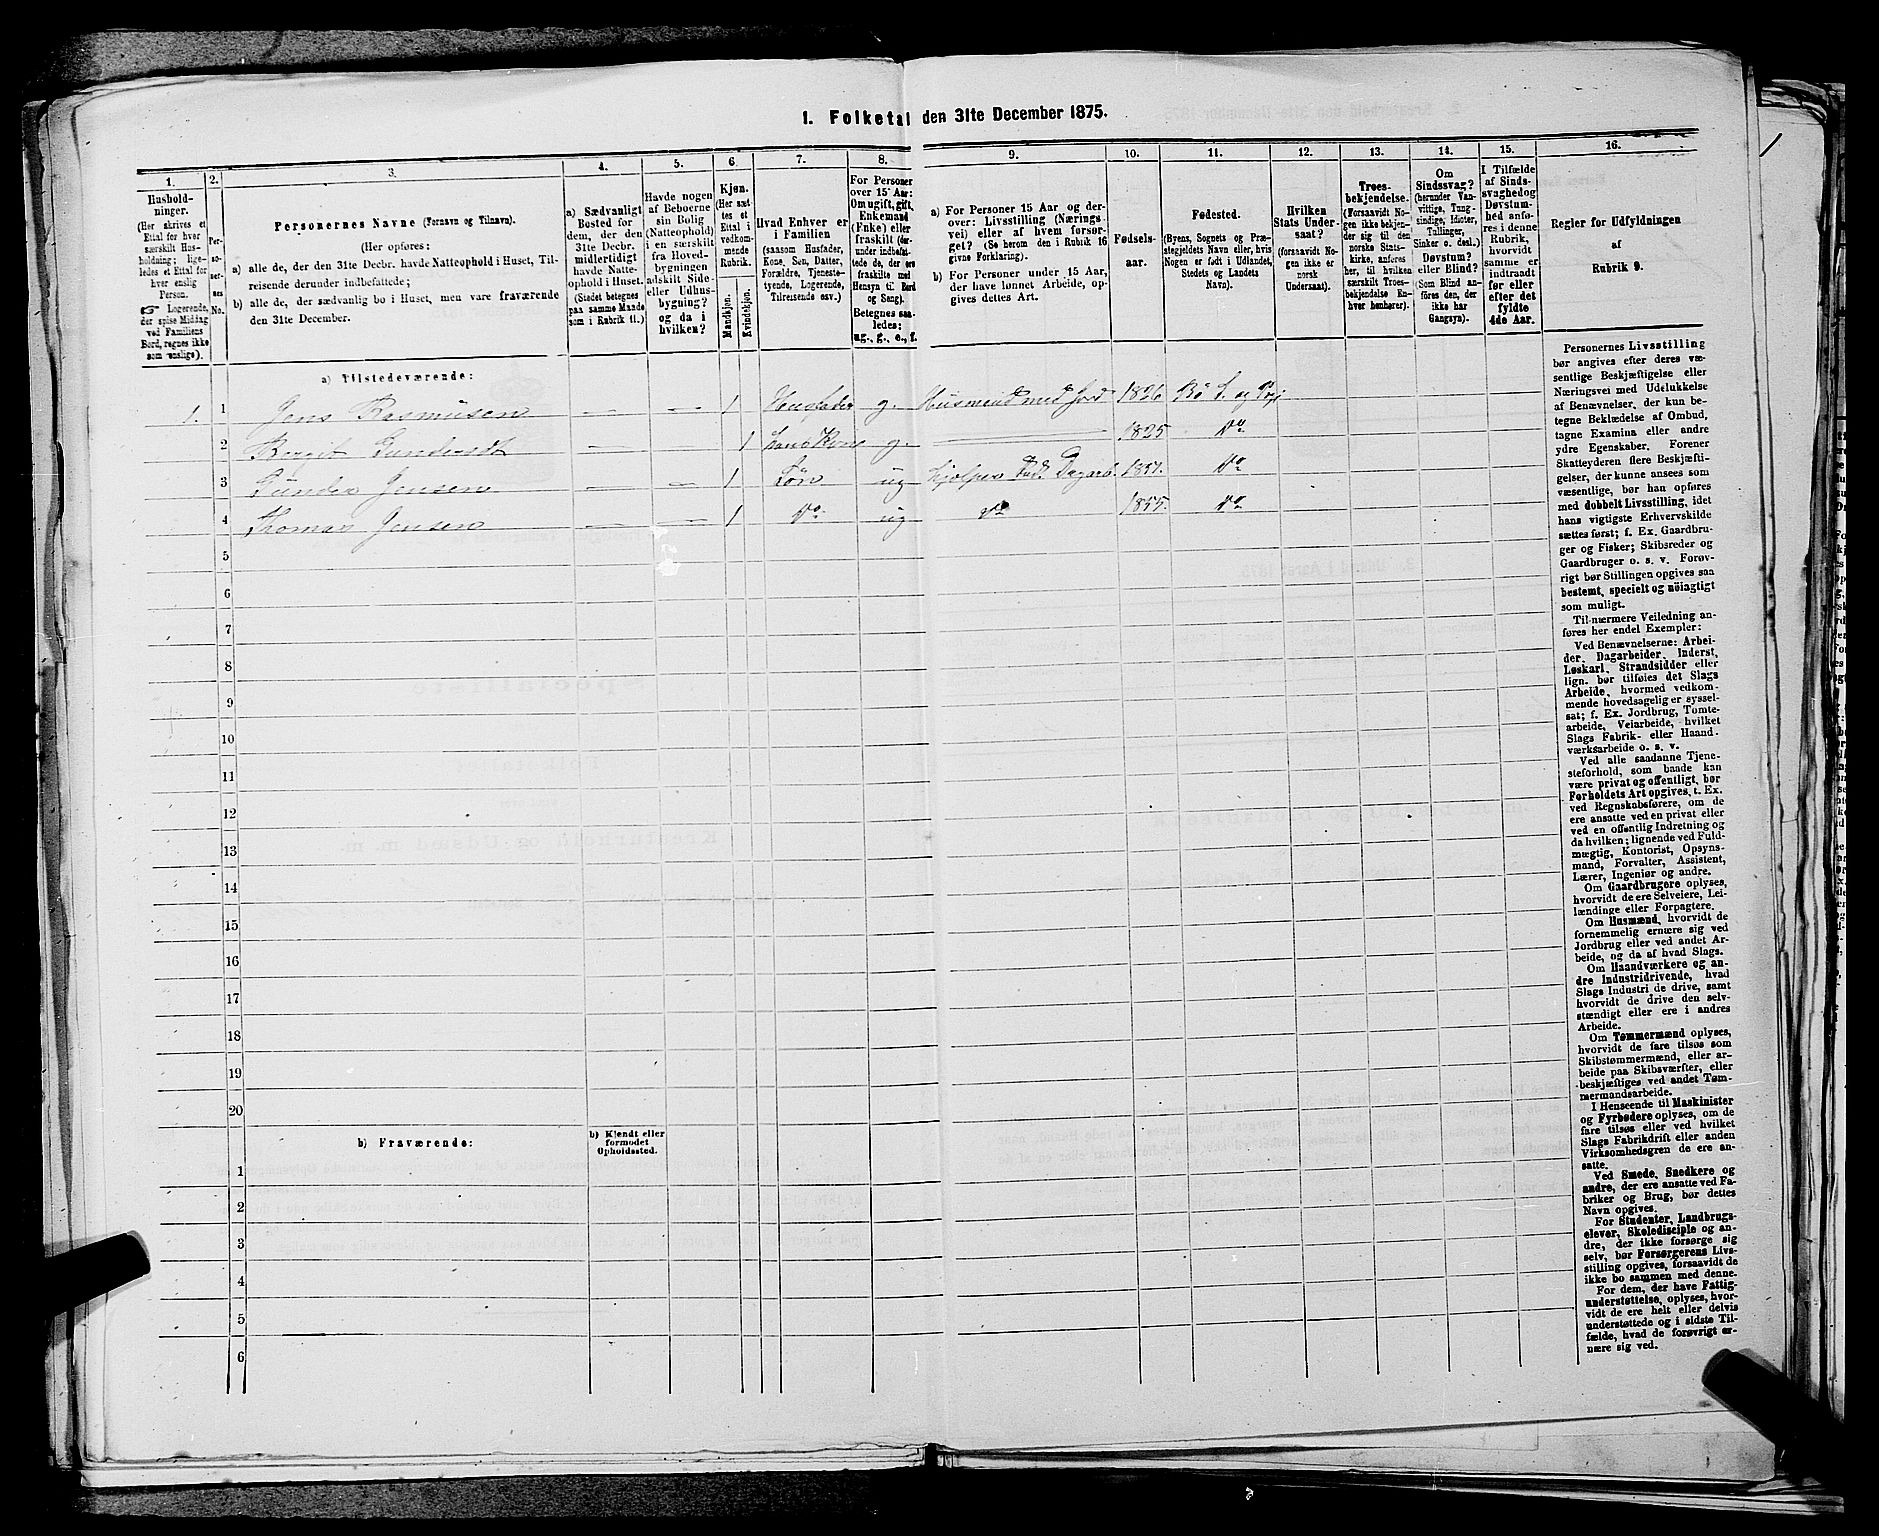 1. Folketal den 31te December 1875.
1. 2. 3. 4. 5. 6. 7. 8. 9. 10. 11. 12. 13. 14. 15. 16.
Hushold-
ninger.
(Her skrives et
Ettal for hver
særskilt Hus-
holdning; lige-
ledes et Ettal for
hver enslig
Person.
☞ Logerende,
der spise Middag
ved Familiens
Bord, regnes ikke
som enslige).
Per-
so-
ner-
nes
No.
Personernes Navne (Fornavn og Tilnavn).
(Her opføres:
a) alle de, der den 31te Decbr. havde Natteophold i Huset, Til-
reisende derunder indbefattede;
b) alle de, der sædvanlig bo i Huset, men vare fraværende
den 31te December.
a) Sædvanligt
Bosted for
dem, der den
31te Decbr.
midlertidigt
havde Natte-
ophold i Huset.
(Stedet betegnes
paa samme Maade
som i Rubrik 11.)
Havde nogen
af Beboerne
sin Bolig
(Natteophold)
i en særskilt
fra Hoved-
bygningen
adskilt Side-
eller Udhus-
bygning?
og da i
hvilken?
Kjøn.
(Her sæt-
tes et
Ettal i
vedkom-
mende
Rubrik.
Mandkjøn.
Kvindekjøn.
Hvad Enhver er
i Familien
(saasom Husfader,
Kone, Søn, Datter,
Forældre, Tjeneste-
tyende, Logerende,
Tilreisende osv.)
For Personer
over 15 Aar:
Om ugift, gift,
Enkemand
(Enke) eller
fraskilt (der-
under indbefat-
tede de, der ere
fraskilte med
Hensyn til Bord
og Seng).
Betegnes saa-
ledes:
ug., g., e., f.
a) For Personer 15 Aar og der-
over: Livsstilling (Nærings-
vei) eller af hvem forsør-
get? (Se herom den i Rubrik 16
givne Forklaring).
b) For Personer under 15 Aar,
der have lønnet Arbeide, op-
gives dettes Art.
Fødsels-
aar.
Fødested.
(Byens, Sognets og Præ-
stegjeldets Navn eller, hvis
Nogen er født i Udlandet,
Stedets og Landets
Navn).
Hvilken
Stats Under-
saat?
(forsaavidt No-
gen ikke er
norsk
Undersaat).
Troes-
bekjendelse.
(Forsaavidt No-
gen ikke bekjen-
der sig til den
norske Stats-
kirke, anføres
her, til hvilken
særskilt Troes-
bekjendelse En-
hver henhører).
Om
Sindssvag?
(herunder Van-
vittige, Tung-
sindige, Idioter,
Tullinger,
Sinker o. desl.)
Døvstum?
eller Blind?
(Som Blind an-
føres den, der
ikke har
Gangsyn).
I Tilfælde
af Sinds-
svaghed og
Døvstum-
hed anfø-
res i denne
Rubrik,
hvorvidt
samme er
indtraadt
før eller
efter det
fyldte
4de Aar.
Regler for Udfyldningen
af
Rubrik 9.
a) Tilstedeværende:
1. 1 Jens Rasmusen — — 1 Husfader g. Husmand med Jord 1826 Bø S. og Prgj
2 Bergit Gundersdt — — 1 hans Kone g. — 1825 Do
3 Gunder Jensen — — 1 Søn ug Hjelper Fad. Dagarb. 1851. Do
4 Thomas Jensen — — 1 Do ug Do 1855. Do
5
6
7
8
9
10
11
12
13
14
15
16
17
18
19
20
b) Fraværende:
b) Kjendt eller
formodet
Opholdssted.
1
2
3
4
5
6
Personernes Livsstilling
bør angives efter deres væ-
sentlige Beskjæftigelse eller
Næringsvei med Udelukkelse
af Benævnelser, der kun be-
tegne Beklædelse af Ombud,
tagne Examina eller andre
ydre Egenskaber. Forener
Skatteyderen flere Beskjæfti-
gelser, der kunne ansees som
væsentlige, bør han opføres
med dobbelt Livsstilling, idet
hans vigtigste Erhvervskilde
sættes først; f. Ex. Gaardbru-
ger og Fisker; Skibsreder og
Gaardbruger o. s. v. Forøv-
rigt bør Stillingen opgives saa
bestemt, specielt og nöiagtigt
som muligt.
Til nærmere Veiledning an-
føres her endel Exempler:
Ved Benævnelserne: Arbei-
der, Dagarbeider, Inderst,
Løskarl, Strandsidder eller
lign. bør tilføies det Slags
Arbeide, hvormed vedkom-
mende hovedsagelig er syssel-
sat; f. Ex. Jordbrug, Tomte-
arbeide, Veiarbeide, hvilket
Slags Fabrik- eller Haand-
værksarbeide o. s. v.
Ved alle saadanne Tjene-
steforhold, som baade kan
være privat og offentligt, bør
Forholdets Art opgives, t. Ex.
ved Regnskabsførere, om de
ere ansatte ved en privat eller
ved en offentlig Indretning og
da hvilken; lignende ved Fuld-
mægtig, Kontorist, Opsyns-
mand, Forvalter, Assistent,
Lærer, Ingeniør og andre.
Om Gaardbrugere oplyses,
hvorvidt de ere Selveiere, Lei-
lændinge eller Forpagtere.
Om Husmænd, hvorvidt de
fornemmelig ernære sig ved
Jordbrug eller ved andet Ar-
beide, og da af hvad Slags.
Om Haandværkere og an-
dre Industridrivende, hvad
Slags Industri de drive, samt
hvorvidt de drive den selv-
stændigt eller ere i andres
Arbeide.
Om Tømmermænd oplyses,
hvorvidt de fare tilsøs som
Skibstømmermænd, eller ar-
beide paa Skibsværfter, eller
beskjæftiges ved andet Tøm-
mermandsarbeide.
I Henseende til Maskinister
og Fyrbødere oplyses, om de
fare tilsøs eller ved hvilket
Slags Fabrikdrift eller anden
Virksomhedsgren de ere an-
satte.
Ved Smede, Snedkere og
andre, der ere ansatte ved Fa-
briker og Brug, bør dettes
Navn opgives.
For Studenter, Landbrugs-
elever, Skoledisciple og an-
dre, der ikke forsørge sig
selv, bør Forsørgerens Livs-
stilling opgives, forsaavidt de
ikke bo sammen med denne.
For dem, der have Fattig-
understøttelse, oplyses, hvor-
vidt de ere helt eller delvis
understøttede og i sidste Til-
fælde, hvad de forøvrigt er-
nære sig ved.